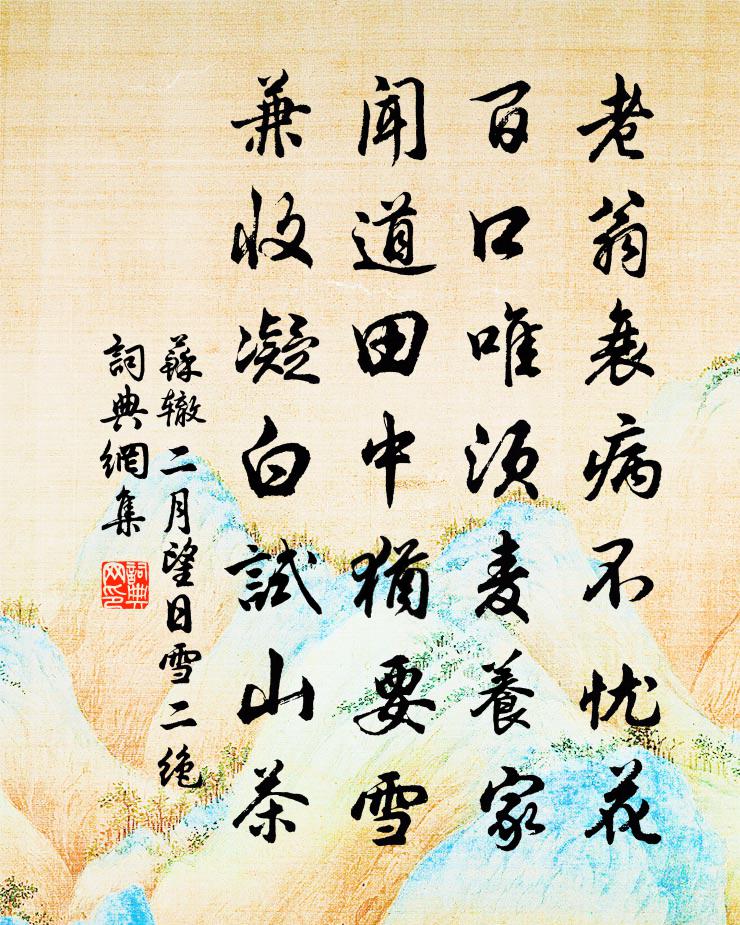 老翁衰病不忧花
百口唯须麦養家
闻道田中猶要雪
兼收凝白試山茶
蘇辙二月望日雪二绝
詞典網集
詞典
网印